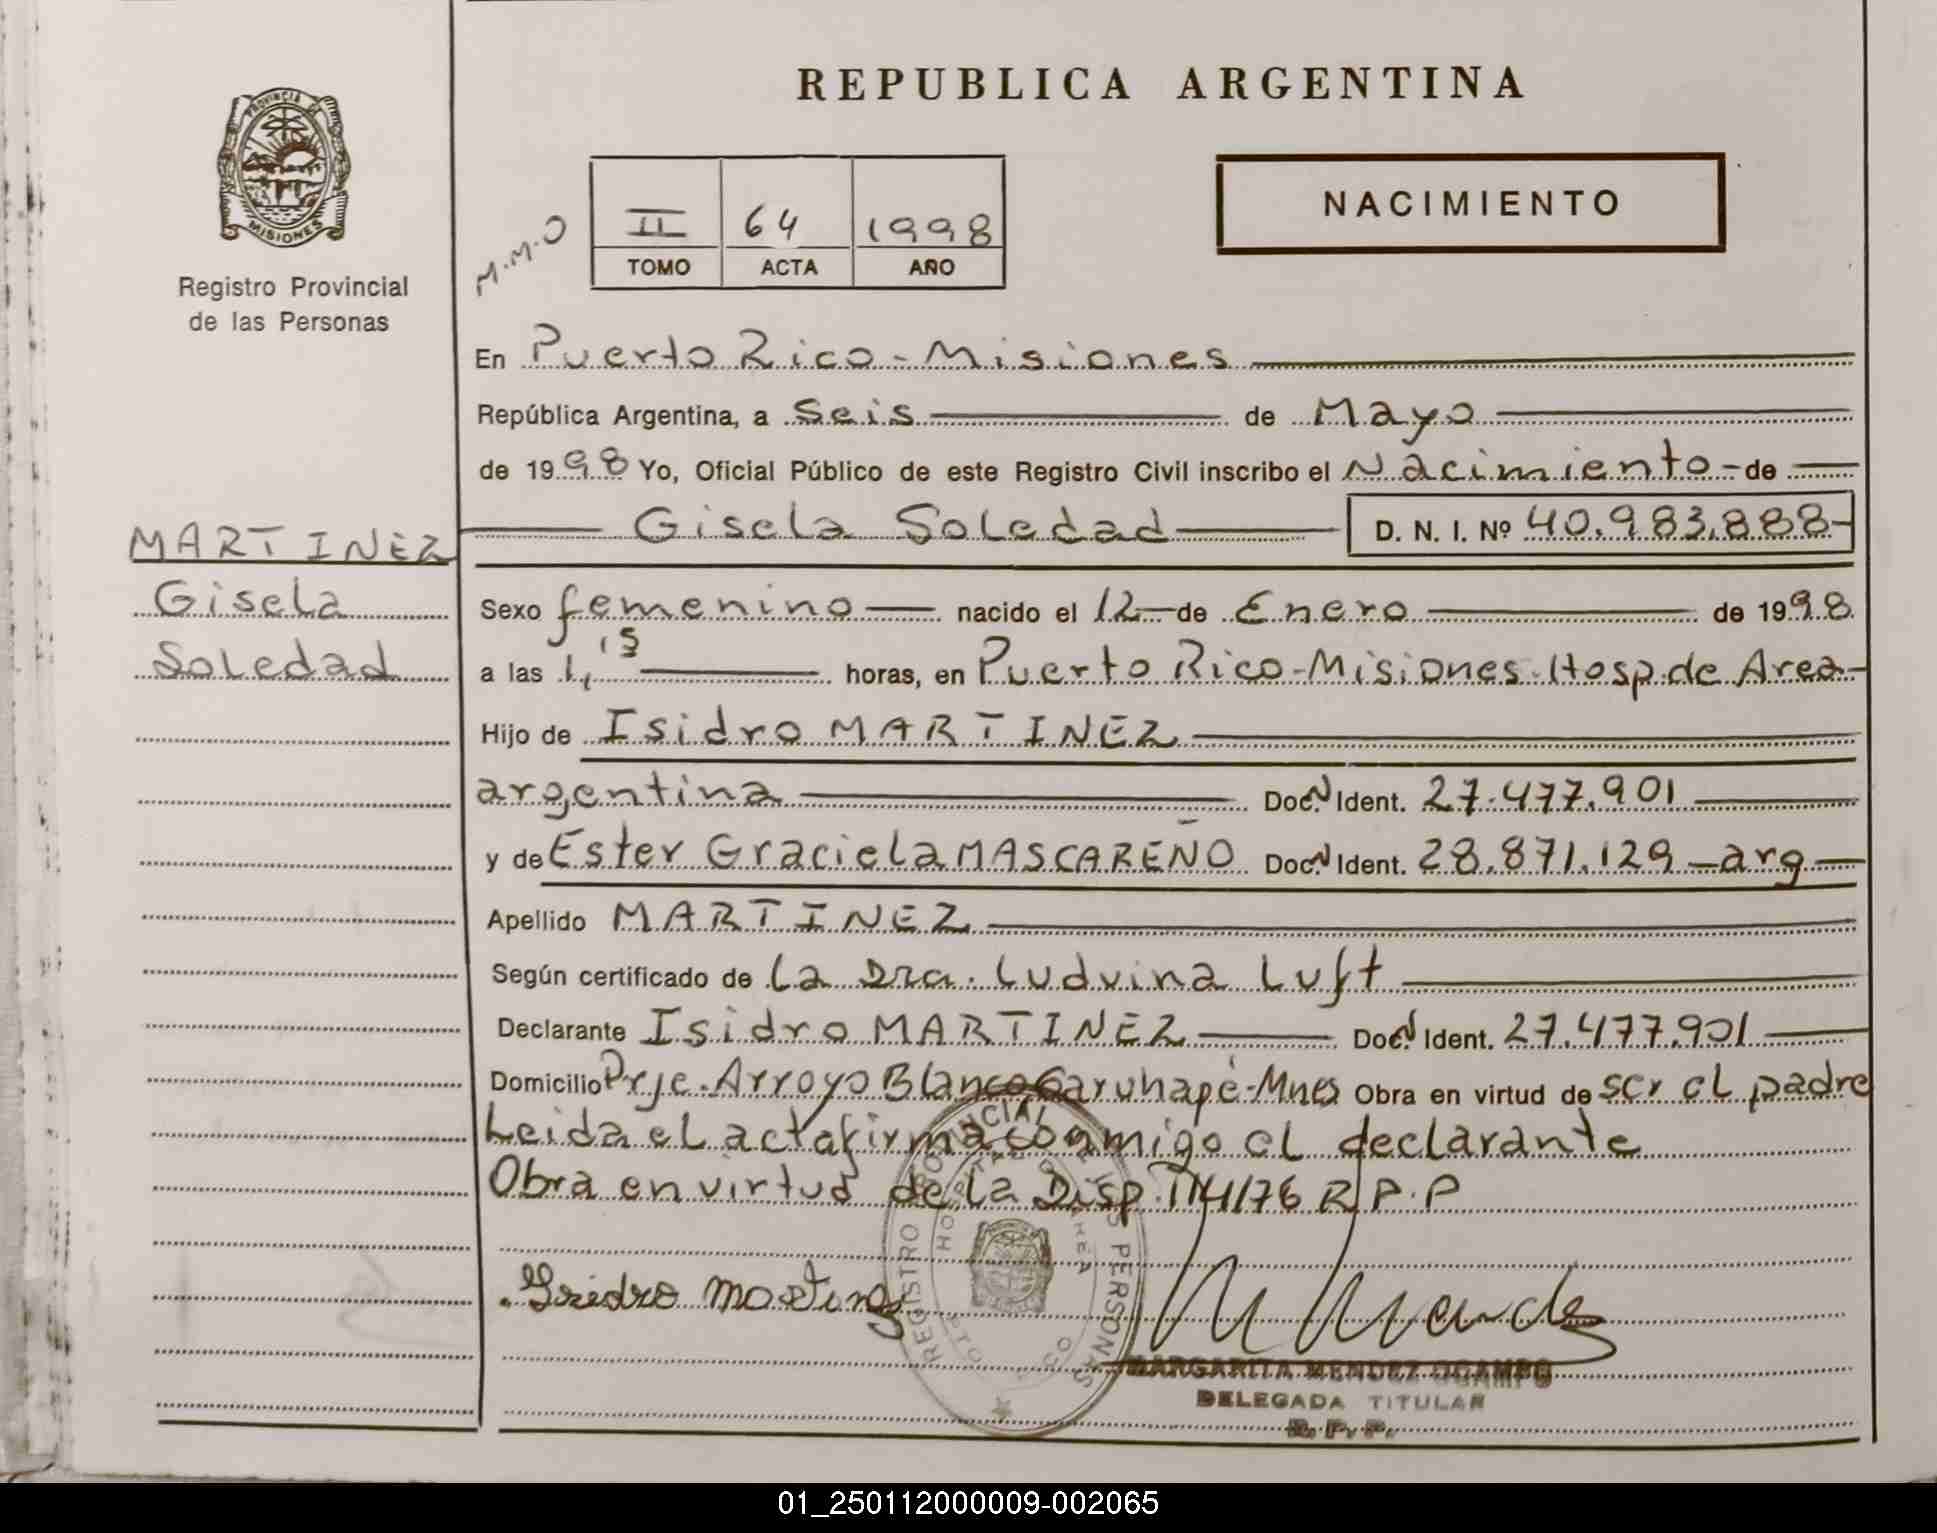 REPUBLICA ARGENTINA
PROVINCIA DE
MISIONES
Registro Provincial
de las Personas
NACIMIENTO
M.M.O
II 64 1998
TOMO ACTA AÑO
En Puerto Rico - Misiones
República Argentina, a Seis de Mayo
de 1998 Yo, Oficial Público de este Registro Civil inscribo el Nacimiento - de
Gisela Soledad D. N. I. Nº 40.983.888-
MARTINEZ
Gisela
Soledad
Sexo femenino nacido el 12 de Enero de 1998
a las 1,15 horas, en Puerto Rico-Misiones-Hosp.de Area-
Hijo de Isidro MARTINEZ
argentina Doc.N Ident. 27.477.901
y de Ester Graciela MASCAREÑO Doc.N Ident. 28.871.129 - arg
Apellido MARTINEZ
Según certificado de la Dra. Ludvina Luft
Declarante Isidro MARTINEZ Doc.N Ident. 27.477.901
Domicilio Prje. Arroyo Blanco Garuhapé-Mnes Obra en virtud de ser el padre
Leida el acta firma conmigo el declarante
Obra en virtud de la Disp. 114/76 R.P.P
REGISTRO PROVINCIAL DE LAS PERSONAS
HOSPITAL DE AREA
Isidro Martinez
M Mendez
MARGARITA MENDEZ OCAMPO
DELEGADA TITULAR
R. P. P.
01_250112000009-002065